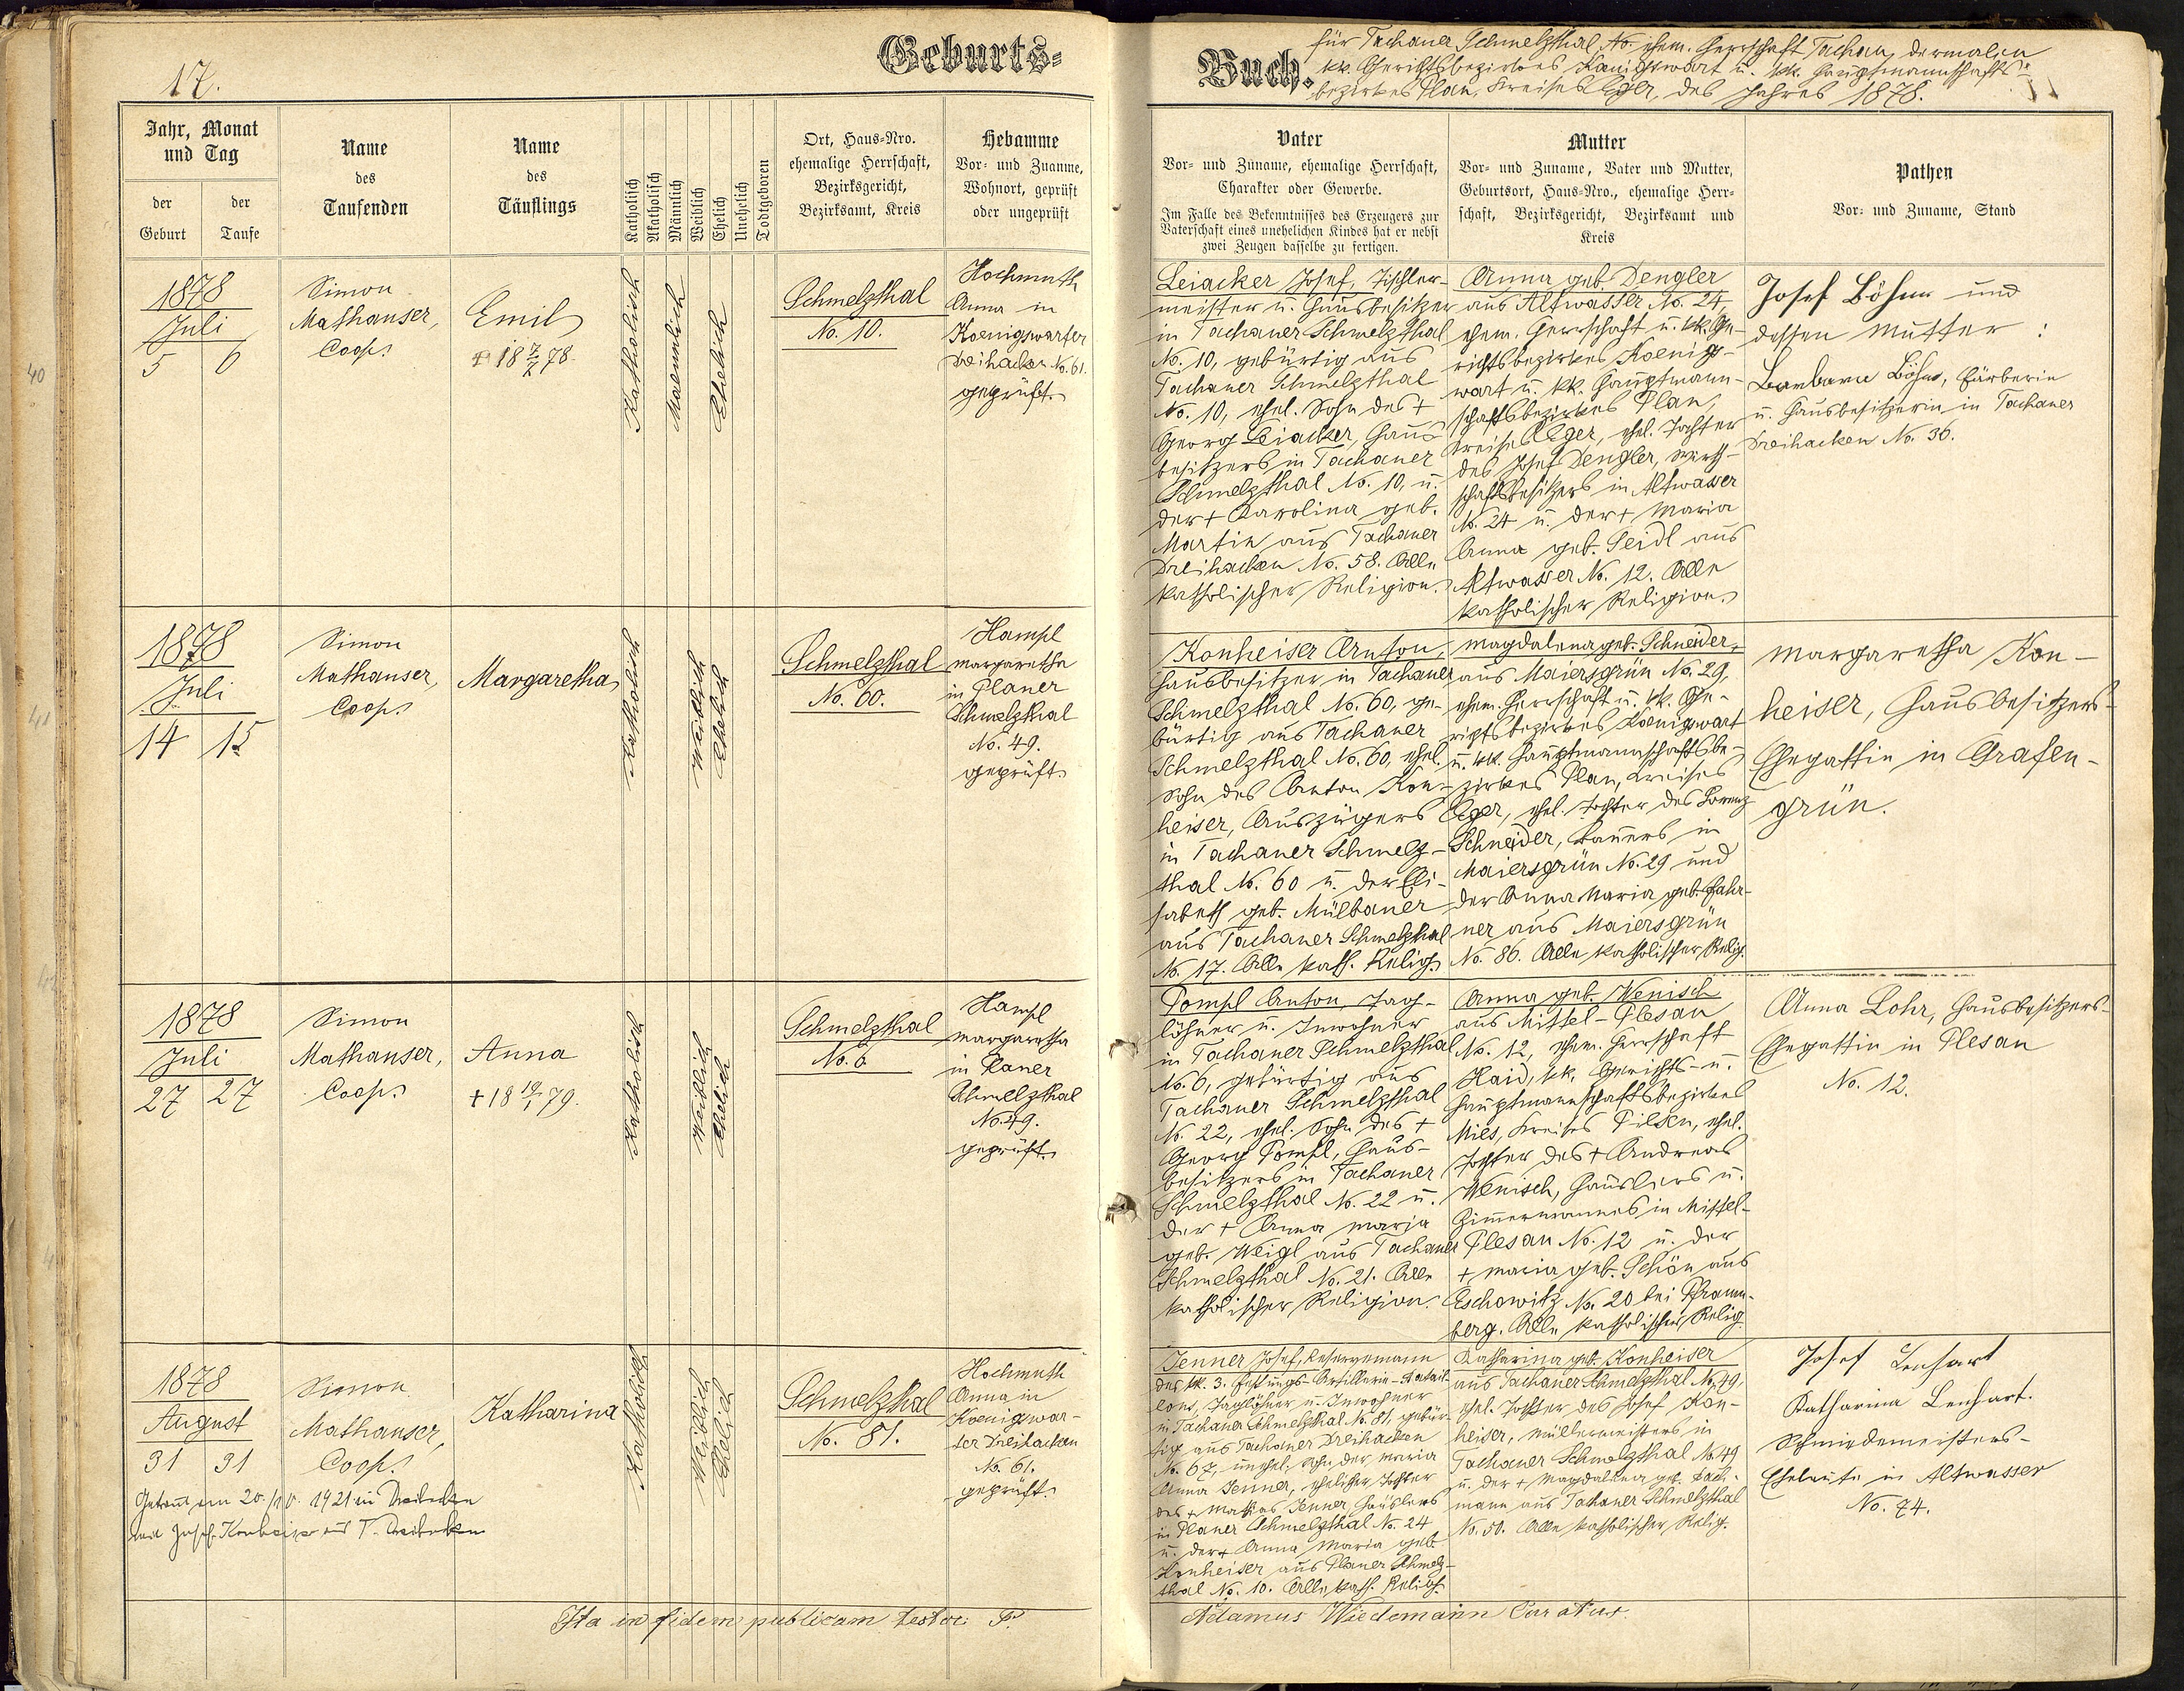 17.
Geburts-
Jahr, Monat
und Tag
der
Geburt
der
Taufe
Name
des
Taufenden
Name
des
Täuflings
Katholisch
Akatholisch
Männlich
Weiblich
Ehelich
Unehelich
Todtgeboren
Ort, Haus-Nro.
ehemalige Herrschaft,
Bezirksgericht,
Bezirksamt, Kreis
Hebamme
Vor- und Zuanme,
Wohnort, geprüft
oder ungeprüft
1878
Juli
5 6
Simon
Mathauser,
Coop.
Emil
+ 18 7/7 78.
Katholisch
Maennlich
Ehelich
Schmelzthal
No. 10.
Hochmuth
Anna in
Koenigswarter
Dreihacken No. 61.
geprüft.
1878
Juli
14 15
Simon
Mathauser,
Coop.
Margaretha
Katholisch
Weiblich
Ehelich
Schmelzthal
No. 60.
Hampl
Margaretha
in Planer
Schmelzthal
No. 49.
geprüft.
1878
Juli
27 27
Simon
Mathauser,
Coop.
Anna
+ 18 19/1 79.
Katholisch
Weiblich
Ehelich
Schmelzthal
No. 6
Hampl
Margaretha
in Planer
Schmelzthal
No. 49.
geprüft.
1878
August
31 31
Simon
Mathauser,
Coop.
Getraut am 20. 1921 in Dreihacken
mit Josef Konheiser aus T. Dreihacken
Katharina
Katholisch
Weiblich
Ehelich
Schmelzthal
No. 81.
Hochmuth
Anna in
Koenigswar-
ter Dreihacken
No. 61.
geprüft.
Ita in fidem publicam testor P.
Buch.
für Tachauer Schmelzthal, ehem. Herrschaft Tachau, dermalen
kk. Gerichtsbezirkes Königswart u. kk. Hauptmannschafts-
bezirkes Plan, Kreises Eger, des Jahres 1878.
Vater
Vor- und Zuname, ehemalige Herrschaft,
Charakter oder Gewerbe.
Im Falle des Bekenntnisses des Erzeugers zur
Vaterschaft eines unehelichen Kindes hat er nebst
zwei Zeugen dasselbe zu fertigen.
Mutter
Vor- und Zuname, Vater und Mutter,
Geburtsort, Haus-Nro., ehemalige Herr-
schaft, Bezirksgericht, Bezirksamt und
Kreis
Pathen
Vor- und Zuname, Stand
Leiacker Josef, Tischler-
meister u. Hausbesitzer
in Tachauer Schmelzthal
No. 10, gebürtig aus
Tachauer Schmelzthal
No. 10, ehel. Sohn des +
Georg Leiacker, Haus-
besitzers in Tachauer
Schmelzthal No. 10, u.
der + Karolina geb.
Martin aus Tachauer
Dreihacken No. 58. Alle
katholischer Religion.
Anna geb. Dengler
aus Altwasser No. 24,
ehem. Herrschaft u. kk. Ge-
richtsbezirkes Koenigs-
wart u. kk. Hauptmann-
schaftsbezirkes Plan,
Kreises Eger, ehel. Tochter
des Josef Dengler, Wirth-
schaftsbesitzers in Altwasser
No. 24 u. der + Maria
Anna geb. Seidl aus
Altwasser No. 12. Alle
katholischer Religion.
Josef Böhm und
dessen Mutter :
Barbara Böhm, Färberin
u. Hausbesitzerin in Tachauer
Dreihacken No. 36.
Konheiser Anton,
Hausbesitzer in Tachauer
Schmelzthal No. 60, ge-
bürtig aus Tachauer
Schmelzthal No. 60, ehel.
Sohn des Anton Kon-
heiser, Auszügers
in Tachauer Schmelz-
thal No. 60 u. der Eli-
sabeth geb. Mülbauer
aus Tachauer Schmelzthal
No. 17. Alle kath. Relig.
Magdalena geb. Schneider,
aus Maiersgrün No. 29,
ehem. Herrschaft u. kk. Ge-
richtsbezirkes Koenigswart
u. kk. Hauptmannschaftsbe-
zirkes Plan, Kreises
Eger, ehel. Tochter des Lorenz
Schneider, Bauers in
Maiersgrün No. 29 und
der Anna Maria geb. Fahr-
ner aus Maiersgrün
No. 86. Alle katholischer Relig.
Margaretha Kon-
heiser, Hausbesitzers-
Ehegattin in Grafen-
grün.
Pompl Anton, Tag-
löhner u. Inwohner
in Tachauer Schmelzthal
No. 6, gebürtig aus
Tachauer Schmelzthal
No. 22, ehel. Sohn des +
Georg Pompl, Haus-
besitzers in Tachauer
Schmelzthal No. 22 u.
der + Anna Maria
geb. Weigl aus Tachauer
Schmelzthal No. 21. Alle
katholischer Religion.
Anna geb. Wenisch
aus Mittel-Plesau
No. 12, ehem. Herrschaft
Haid, kk. Gerichts- u.
Hauptmannschaftsbezirkes
Mies, Kreises Pilsen, ehel.
Tochter des + Andreas
Wenisch, Häuslers u.
Zimmermannes in Mittel-
Plesau No. 12 u. der
+ Maria geb. Schön aus
Eschowitz No. 20 bei Pfraum-
berg. Alle katholischer Relig.
Anna Lohr, Hausbesitzers-
Ehegattin in Plesau
No. 12.
Jenner Josef, Reservemann
des kk. 3. Festungs-Artillerie-Batail-
lons, Taglöhner u. Inwohner
in Tachauer Schmelzthal No. 81, gebür-
tig aus Tachauer Dreihacken
No. 67, unehel. Sohn der Maria
Anna Jenner, ehelicher Tochter
des + Mathias Jenner, Häuslers
in Planer Schmelzthal No. 24
u. der + Anna Maria geb.
Konheiser aus Planer Schmelz-
thal No. 10. Alle kath. Relig.
Katharina geb. Konheiser
aus Tachauer Schmelzthal No. 49,
ehel. Tochter des Josef Kon-
heiser, Müllermeisters in
Tachauer Schmelzthal No. 49
u. der + Magdalena geb. Bach-
mann aus Tachauer Schmelzthal
No. 50. Alle katholischer Relig.
Josef Lenhart
Katharina Lenhart.
Schmiedemeisters-
Eheleute in Altwasser
No. 74.
Adamus Wiedemann Curatus.